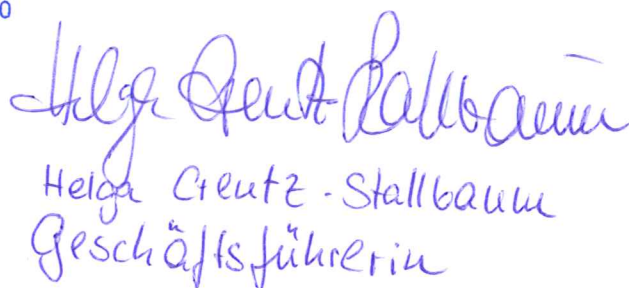 0
Helga Creutz-Stallbaum
Helga Creutz-Stallbaum
Geschäftsführerin